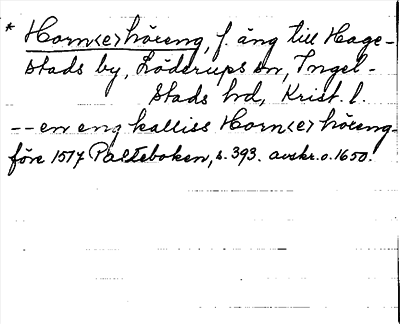 * Horn<e>höreng, f. äng till Hage-
stads by, Löderups sn, Ingel-
stads hd, Krist. l.
-- en eng kalliss Horn<e>höreng
före 1517 Palteboken, s. 393. avskr. o. 1650.